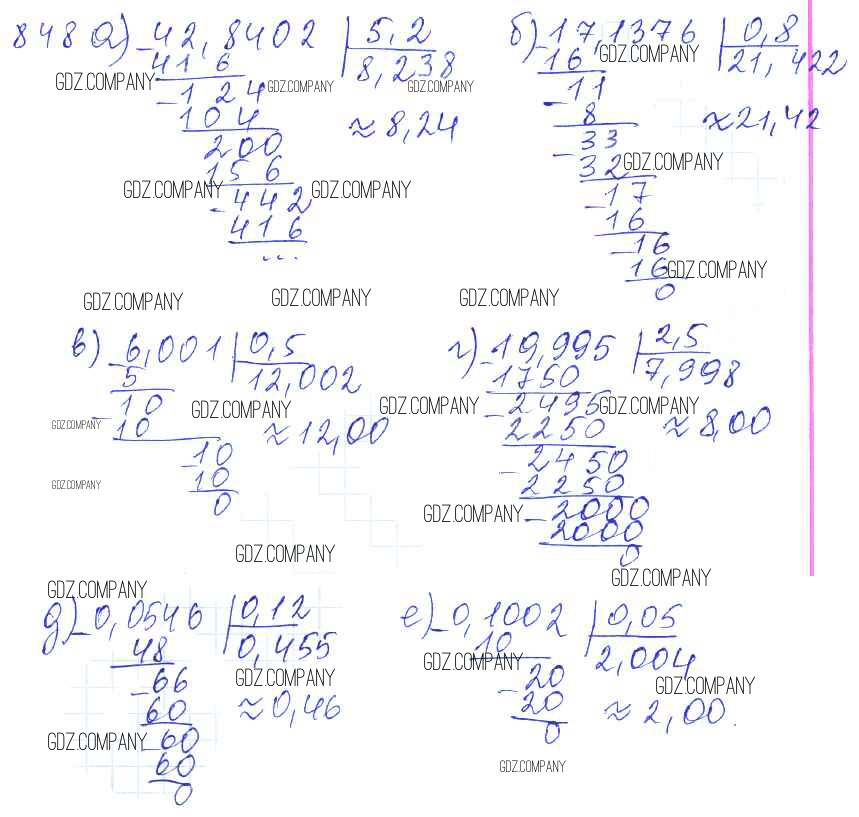 848 а) 42,8402 | 5,2    б) 17,1376 | 0,8
41 6    8,238    16    GDZ.COMPANY    21,422
GDZ.COMPANY    GDZ.COMPANY    GDZ.COMPANY
- 1 24    - 11
104    ≈ 8,24    8    ≈ 21,42
200    - 33
156    32    GDZ.COMPANY
GDZ.COMPANY    GDZ.COMPANY
- 442    - 17
416    16
...    - 16
16    GDZ.COMPANY
0
GDZ.COMPANY    GDZ.COMPANY    GDZ.COMPANY
в) - 6,001 | 0,5    г) - 19,995 | 2,5
5    12,002    1750    7,998
- 10    GDZ.COMPANY    GDZ.COMPANY    - 2495    GDZ.COMPANY
GDZ.COMPANY    10    ≈ 12,00    2250    ≈ 8,00
- 10    - 2450
GDZ.COMPANY    10    2250
0    GDZ.COMPANY    - 2000
2000
GDZ.COMPANY    0
GDZ.COMPANY    GDZ.COMPANY
д) - 0,0546 | 0,12    е) - 0,1002 | 0,05
48    0,455    10    2,004
- 66    GDZ.COMPANY    GDZ.COMPANY    - 20    GDZ.COMPANY
60    ≈ 0,46    20    ≈ 2,00.
GDZ.COMPANY    - 60    0
60    GDZ.COMPANY
0